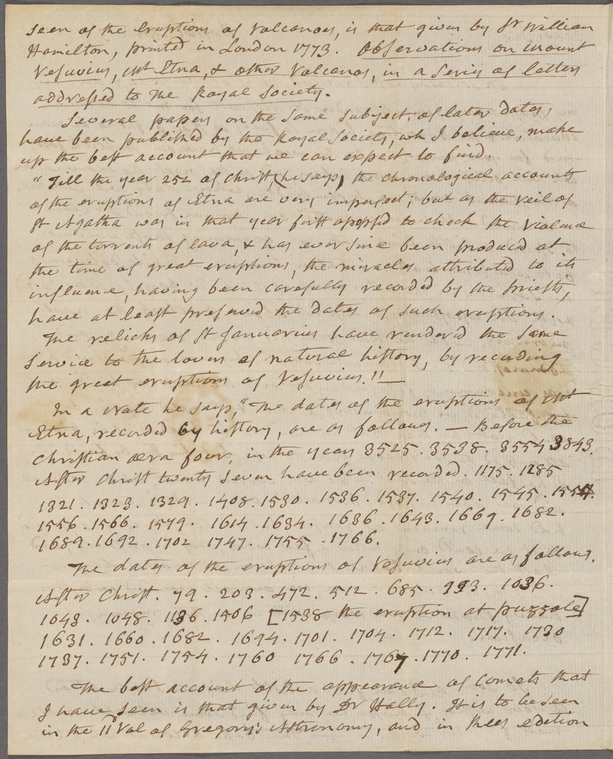 seen of the Eruptions of Volcanos, is that given by Sr William
Hamilton, printed in London 1773. Observations on mount
Vesuvius, Mt Etna, & other Volcanos, in a Series of letters
addressed to the Royal Society.
Several papers on the same subject, of later dates,
have been published by the Royal Society, wh I believe, make
up the best account that we can expect to find.
"Till the year 252 of Christ, (he says) the chronological accounts
of the eruptions of Etna are very imperfect; but as the veil of
St Agatha was in that year first opposed to check the violence
of the torrents of lava, & has ever since been produced at
the time of great eruptions, the miracles attributed to its
influence, having been carefully recorded by the priests,
have at least preserved the dates of such eruptions.
The relicks of St Januarius have rendered the same
service to the lovers of natural history, by recording
the great eruptions of Vesuvius."!!—
In a note he says, "The dates of the eruptions of Mt
Etna, recorded by history, are as follows. — Before the
Christian æra four, in the years 3525. 3538. 3554 3843.
After Christ twenty seven have been recorded. 1175. 1285
1321. 1323. 1329. 1408. 1530. 1536. 1537. 1540. 1545. 1554.
1556. 1566. 1579. 1614. 1634. 1636. 1643. 1669. 1682.
1689. 1692. 1702 1747. 1755 .1766.
The dates of the eruptions of Vesuvius are as follows.
After Christ. 79. 203. 472. 512. 685. 993. 1036.
1043. 1048. 1136. 1506 [1538 the eruption at puzzole]
1631. 1660. 1682. 1694. 1701. 1704. 1712. 1717. 1730
1737. 1751. 1754. 1760 1766 .1767 .1770. 1771.
The best account of the appearance of Comets that
I have seen is that given by Dr Hally. It is to be seen
in the II Vol of Gregory's Astronomy, and in Rees edition